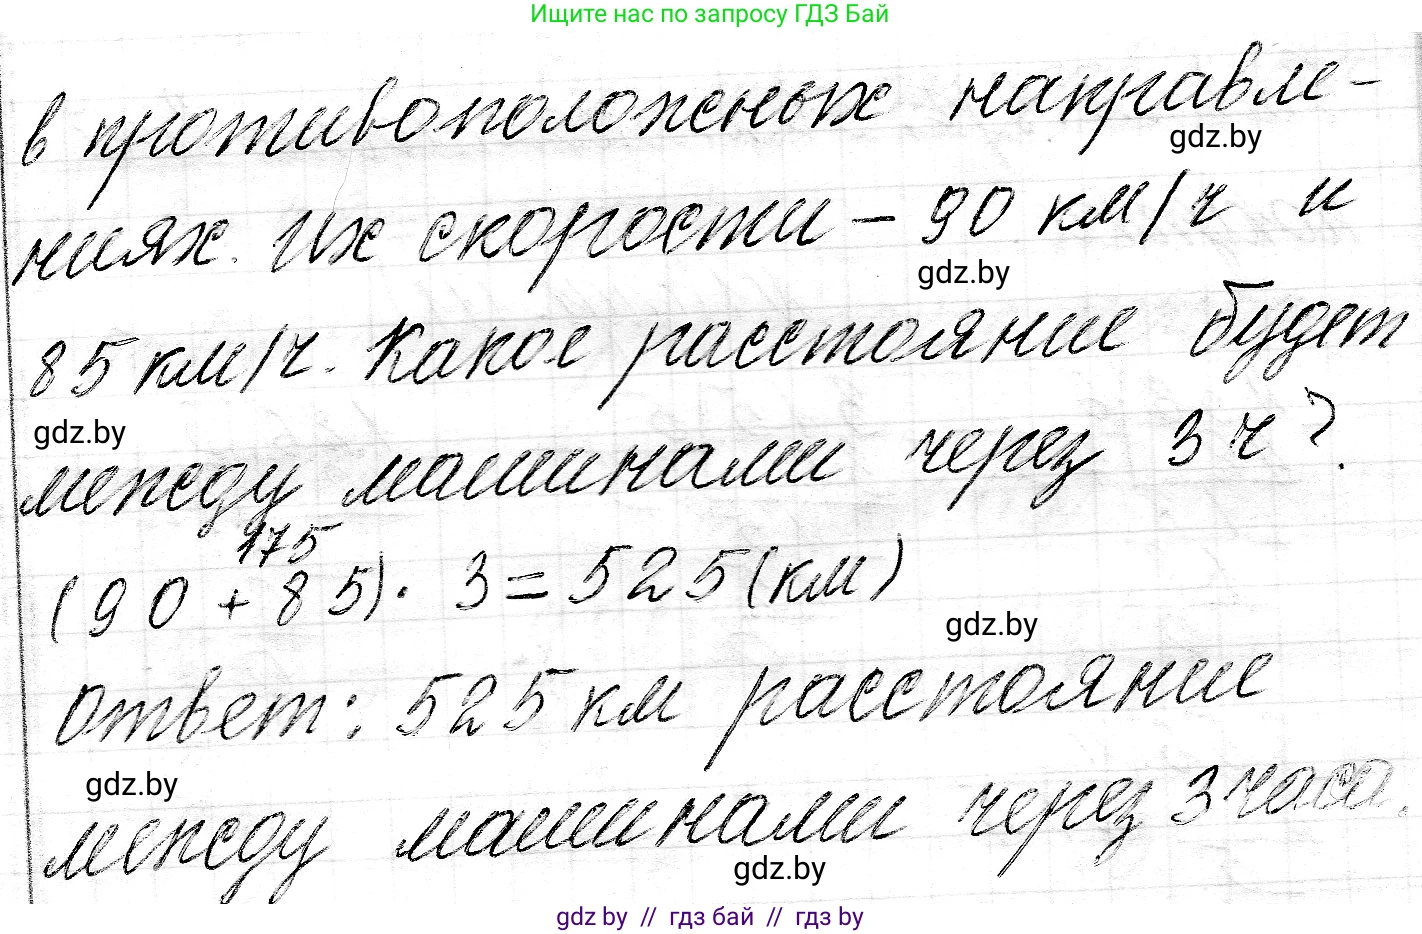 Ищите нас по запросу ГДЗ Бай
в противоположных направле-
gdz.by
ниях. Их скорости – 90 км/ч и
gdz.by
85 км/ч. Какое расстояние будет
gdz.by
между машинами через 3 ч?
175
(90 + 85) · 3 = 525 (км)
gdz.by
Ответ: 525 км расстояние
gdz.by
между машинами через 3 часа.
gdz.by
gdz by // гдз бай // гдз by